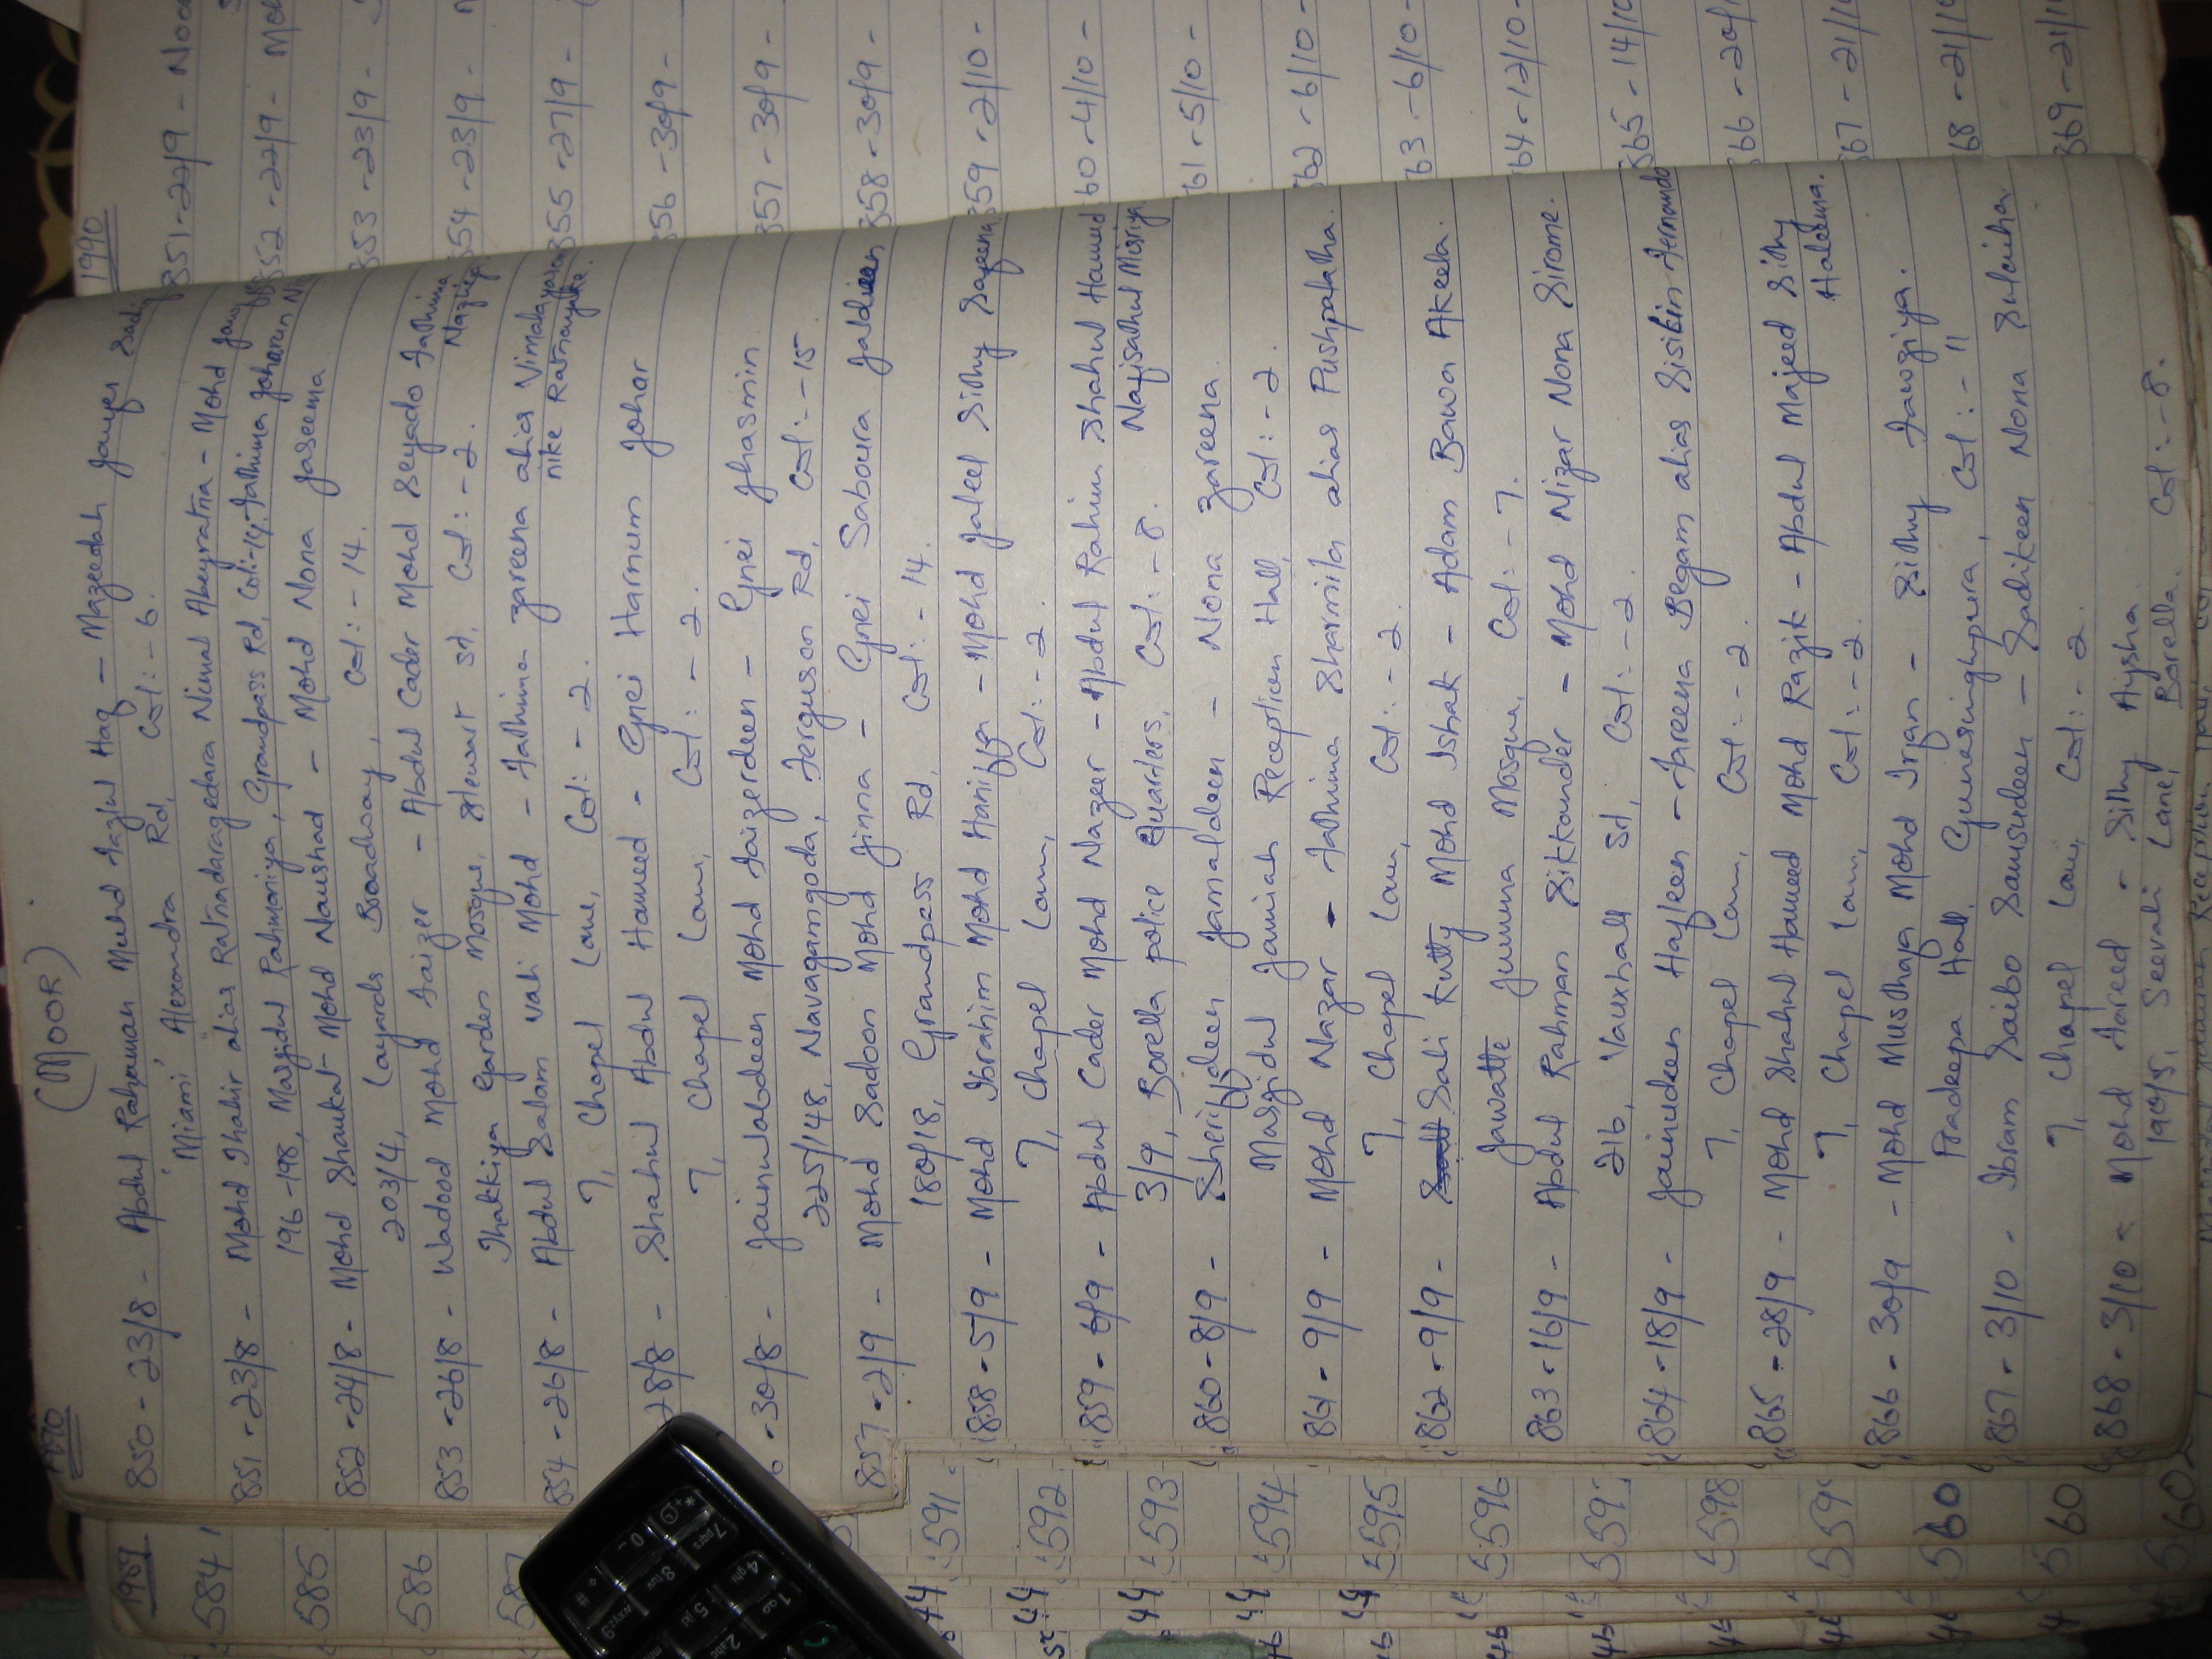 1990
(MOOR)
850 - 23/8 - Abdul Rahaman Muhd Fazlul Haq - Mazeedah Jaufer Sadiq
'Miami' Alexandra Rd, Col:- 6.
851 - 23/8 - Mohd Thahir alias Ratnadaragedara Nimal Abeyratna - Mohd
196-198, Masjidul Rahmaniya, Grandpass Rd, Col:-14. Fathima Joharun
852 - 24/8 - Mohd Shaukat Mohd Naushad - Mohd Nona Jaseema
203/4, Layards Broadway, Col:- 14.
853 - 26/8 - Wadood Mohd Faizer - Abdul Cader Mohd Seyado Fathima
Thakkiya Garden Mosque, Stewart St, Col:- 2. Naziya
854 - 26/8 - Abdul Salam Vali Mohd - Fathima Zareena alias
nike Ratnayake.
7, Chapel Lane, Col:- 2.
28/8 - Shahul Abdul Hameed - Gnei Harnum Johar
7, Chapel Lane, Col:- 2.
6 - 30/8 - Jainulabdeen Mohd Faizerdeen - Gnei Jhasmin
225/148, Navagamgoda, Ferguson Rd, Col:- 15.
857 - 2/9 - Mohd Sadoon Mohd Jinna - Gnei Saboura Jaldeen
180/18, Grandpass Rd, Col:- 14.
858 - 5/9 - Mohd Ibrahim Mohd Haniffa - Mohd Jaleel Sithy Safeena
7, Chapel Lane, Col:- 2.
859 - 6/9 - Abdul Cader Mohd Nazeer - Abdul Rahim Shahul Hameed
3/9, Borella police Quarters, Col:- 8. Nafisathul Misriya
860 - 8/9 - Sheriffdeen Jamaldeen - Nona Zareena
Masjidul Jamiah Reception Hall, Col:- 2.
861 - 9/9 - Mohd Nazar - Fathima Sharmila alias Pushpalatha.
7, Chapel Lane, Col:- 2.
862 - 9/9 - Sali Kutty Mohd Ishak - Adam Bawa Akeela.
Jawatte Jumma Mosque, Col:- 7.
863 - 16/9 - Abdul Rahman Sikkander - Mohd Nizar Nona Sirome.
216, Vauxhall St, Col:- 2.
864 - 18/9 - Jainudeen Hafleen - Fareena Begam alias Fernando
7, Chapel Lane, Col:- 2.
865 - 28/9 - Mohd Shahul Hameed Mohd Razik - Abdul Majeed Sithy
Haleema.
7, Chapel Lane, Col:- 2.
866 - 30/9 - Mohd Musthafa Mohd Irfan - Sithy Fawziya.
Pradeepa Hall, Gunasinghpura, Col:- 11
867 - 3/10 - Ibram Saibo Samsudeen - Sadikeen Nona Sulaiha
7, Chapel Lane, Col:- 2.
868 - 3/10 - Mohd Fareed - Sithy Aysha
190/5, Seevali Lane, Borella. Col:- 8.
1989
584
585
586
587
591
592
593
594
5595
5596
5598
560
60
1990
851 - 22/9 -
852 - 22/9 -
853 - 23/9 -
854 - 23/9 -
855 - 27/9 -
856 - 30/9 -
857 - 30/9 -
858 - 30/9 -
859 - 2/10 -
60 - 4/10 -
61 - 5/10 -
62 - 6/10 -
63 - 6/10 -
64 - 12/10 -
865 - 14/10
66 - 20/1
67 - 21/1
68 - 21/1
869 - 21/1